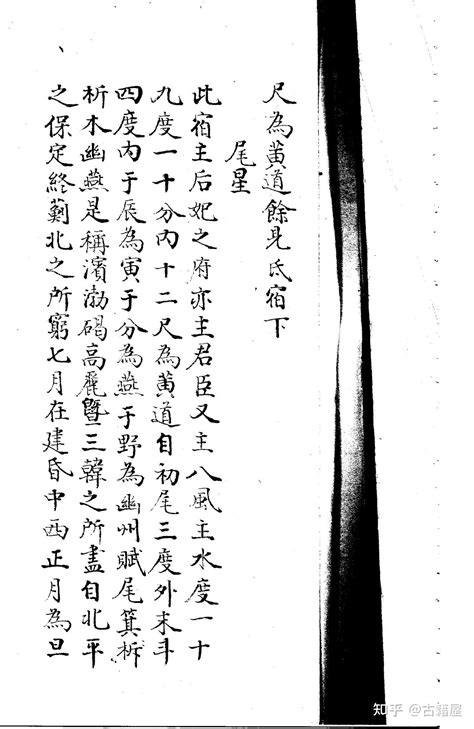 尺為黃道餘見氐宿下
尾星
此宿主后妃之府亦主君臣又主八風主水度一十
九度一十分內十二尺為黃道自初尾三度外末斗
四度內于辰為寅于分為燕于野為幽州賦尾箕析
析木幽燕是稱濱渤碣高麗暨三韓之所盡自北平
之保定終薊北之所窮七月在建昏中西正月為旦
知乎 @古籍屋